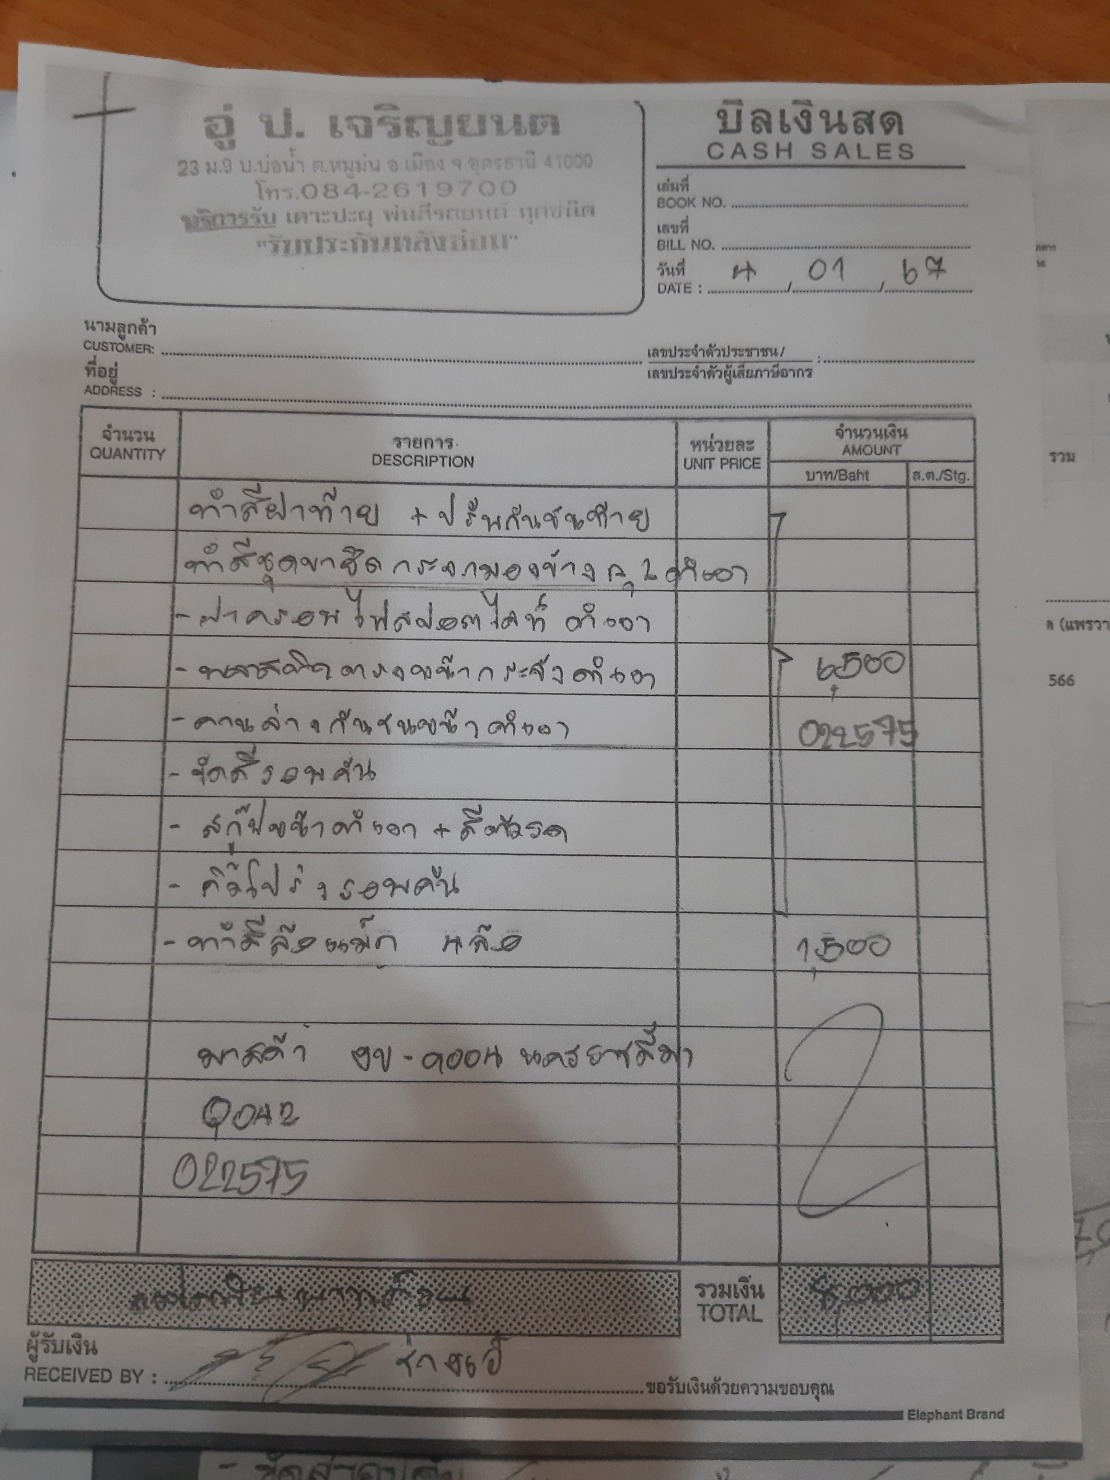 อู่ ป. เจริญยนต์
23 ม.9 บ.บ่อน้ำ ต.หมูม่น อ.เมือง จ.อุดรธานี 41000
โทร.084-2619700
บริการรับ เคาะปะผุ พ่นสีรถยนต์ ทุกชนิด
"รับประกันหลังซ่อม"
บิลเงินสด
CASH SALES
เล่มที่
BOOK NO.
เลขที่
BILL NO.
วันที่ 4 01 67
DATE : / /
นามลูกค้า
CUSTOMER:
เลขประจำตัวประชาชน/ :
เลขประจำตัวผู้เสียภาษีอากร
ที่อยู่
ADDRESS :
จำนวน รายการ หน่วยละ จำนวนเงิน
QUANTITY DESCRIPTION UNIT PRICE AMOUNT
บาท/Baht ส.ต./Stg.
ทำสีฝาท้าย + ปรับกันชนท้าย
ทำสีชุดขายึดกระจกมองข้าง 2 ดำเงา
- ฝาครอบไฟสปอตไลท์ ดำเงา
- พลาสติก หน้ากระจังดำเงา 6,500
- คานล่างกันชนหน้าดำเงา 022575
- ขัดสีรอบคัน
- สกู๊ปหน้าดำเงา + สีตัวรถ
- คิ้วโป่งรอบคัน
- ทำสีล้อแม็ก 4 ล้อ 1,500
มาสด้า ขข-9004 นครราชสีมา
0042
022575
แปดพันบาทถ้วน
รวมเงิน 8,000
TOTAL
ผู้รับเงิน
RECEIVED BY : ขอรับเงินด้วยความขอบคุณ
Elephant Brand
รวม
566